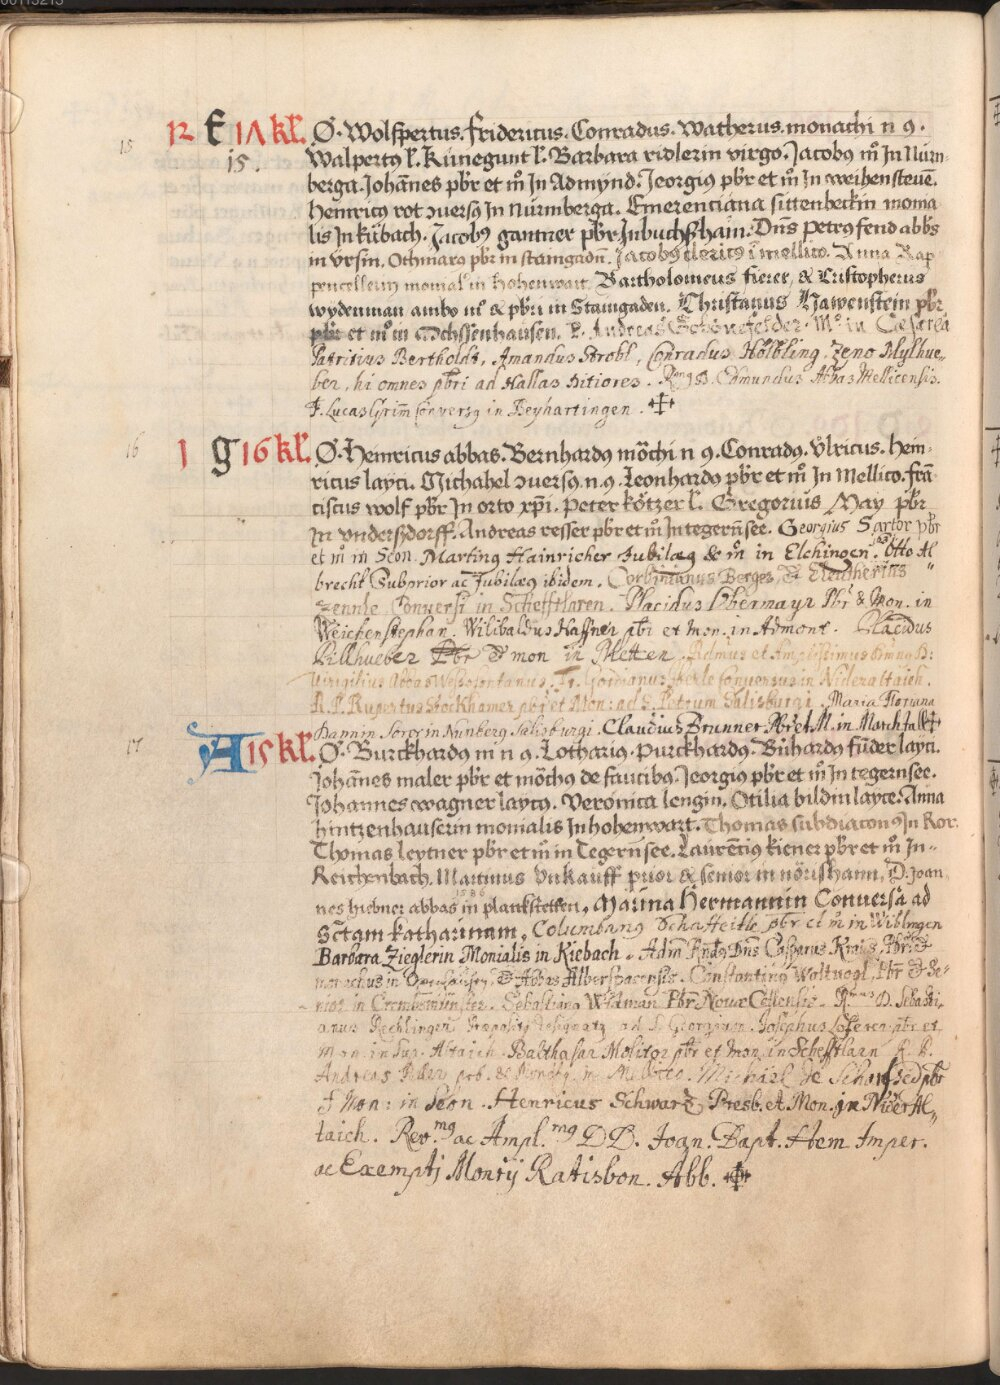 15 12 F 17 kl̄. O. Wolfpertus. Fridericus. Conradus. Waltherus. monachi n 9.
15. Walpertꝰ l̄. Künegunt l̄. Barbara ridlerin virgo. Jacobꝰ m̊ In Nürn-
berga. Johānes pb̄r et m̊ In Admynd. Jeorgiꝰ pb̄r et m̊ In weihensteuē.
Henricꝰ rot ↄuersꝰ In Nürmberga. Emerenciana sittenbeckin monia
lis In kübach. Jacobꝰ gantner pb̄r In buchsshain. Dn̄s petrꝰ fend abb̄s
in vrsin. Othmarꝰ pb̄r in staingadn. Jacobꝰ clericꝰ ī mellico. Anna Rap
pencellerin monial' in hohenwart. Bartholomeus fierer, & Cristopherus
wydenman ambo m̊ & pb̄ri in Staingaden. Christanus Hawenstein pb̄r
pb̄r et m̊ in Ochssenhausen. Andreas Schönefelder. M° in Cesarea
Patritius Bertholdt, Amandus Strobl, Conradus Hölbling, Zeno Mylhue-
ber, hi omnes pb̄ri ad Hallas ditiores. R͞mꝰ D. Edmundus Abbas Mellicensis.
F. Lucas Grim̄ conversꝰ in Beyhartingen. ✠
16 1 g 16 kl̄. O. Heinricus abbas. Bernhardꝰ mōchi n 9. Conradꝰ. Vlricus. Hein-
ricus layci. Michahel ↄuersꝰ. n 9. Leonhardꝰ pb̄r et m̊ In Mellico. frā
ciscus wolf pb̄r In orto xp̄i. Peter kötzer l̄. Gregorius May pb̄r
In vndersdorff. Andreas resser pb̄r et m̊ In tegern̄see. Georgius Sartor pb̄r
et m̊ in Seon. Martinꝰ Hainricher Jubilæꝰ & m̊ in Elchingen. Otto Al
brecht Subprior ac Jubilæꝰ ibidem. Corbinianus Berger, & Eleutherius
Zennle, Conversi in Schefftlaren. Placidus Obermayr Pbr & Mon. in
Weichenstephan. Wilibaldus Haffner pbr et mon. in Admont. Placidus
Pillhueber Pbr & mon in Metten.
Virgilius Abbas Fr. Gordianus conversus in Nideraltaich.
R. P. Rupertus Stockhamer pbr et Mon: ad S. Petrum Salisburgi. Maria Floriana
Soror in Nunberg Salisburgi. Claudius Brunner Pbr et M. in
17 A 15 kl̄. O. Burckhardꝰ m n 9. Lothariꝰ. purckhardꝰ. layci.
Johānes maler pb̄r et mōchꝰ de faucibꝰ. Jeorgiꝰ pb̄r et m̊ In tegernsee.
Johannes wagner laycꝰ. Veronica lengin. Otilia bildin layce. Anna
hintzenhauserin monialis In hohenwart. Thomas subdiaconꝰ In Ror.
Thomas leytner pb̄r et m̊ in Tegern̄see. Laurēciꝰ kiener pb̄r et m̊ In-
Reichenbach. Martinus Vnkauff prior & senior in D. Joan
nes hiebner abbas in plankstetten, Marina Hermannin Conuersa ad
Sc̄tam katharinam, Columbanꝰ pbr et m̊ in Wiblingen
Barbara Zieglerin Monialis in Kiebach. Casparus Kraus, Pbr &
monachus in & Abbas Alberspacensis. Constantinꝰ Waltuogl, Pbr & Se-
nior in Cremssmünster. Sebastianꝰ Widman Pbr D. Sebasti-
anus Rechlinger Præpositꝰ designatꝰ ad S. Georgium. Josephus pbr et
Mon. in Sup. Altaich. Balthasar Molitor pbr et Mon. in Schefftlarn R. P.
Andreas & Monch. in Mellico. Michael de pbr
& Mon: in Seon. Henricus Schwarz Presb. et Mon. in Nider Al-
taich. Rev.mꝰ ac Ampl.mꝰ DD. Joan. Bapt. Hem Imper.
ac Exempti Monrij Ratisbon. Abb. ✠